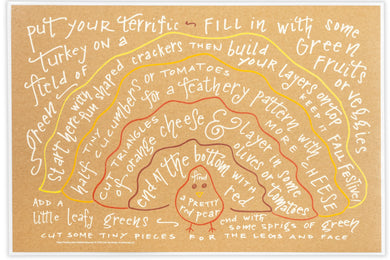 put your terrific turkey on a field of green
fill in with some green fruits or veggies
start here with fun shaped crackers then build your layers on top
keep it all festive!
tiny half-cucumbers or tomatoes for a feathery pattern with more cheese
cut triangles of orange cheese & layer in some olives or tomatoes
end at the bottom with red
find a pretty red pear
add a little leafy greens
end with some sprigs of green
cut some tiny pieces for the legs and face